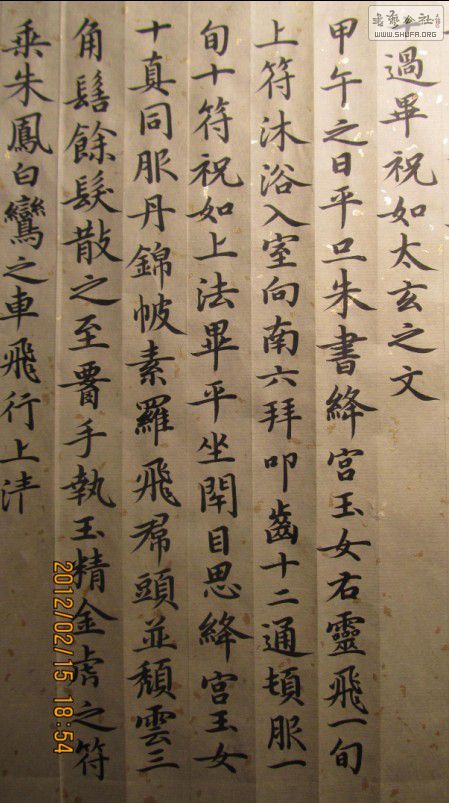 過畢祝如太玄之文
甲午之日平旦朱書絳宮玉女右靈飛一旬
上符沐浴入室向南六拜叩齒十二通頓服一
旬十符祝如上法畢平坐閉目思絳宮玉女
十真同服丹錦帔素羅飛帬頭並頹雲三
角髻餘髮散之至腰手執玉精金虎之符
乘朱鳳白鸞之車飛行上清
書藝公社
WWW.SHUFA.ORG
2012/02/15 18:54